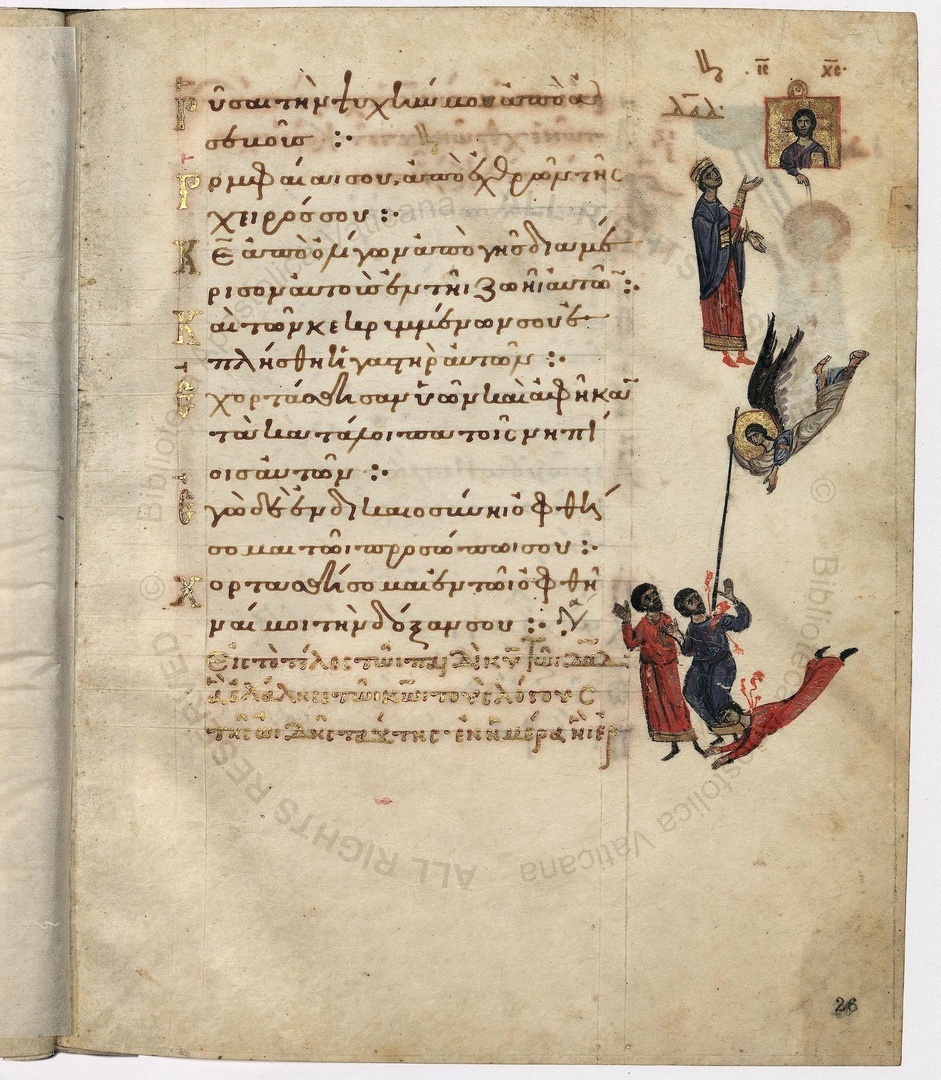 ΙϹ ΧϹ
Ρύσαι τὴν ψυχήν μου ἀπὸ ἀ
σεβοῦς :·
Ρομφαίαν σου, ἀπὸ ἐχθρῶν τῆς
χειρός σου :·
Κ̅Ε̅ ἀπὸ ὀλίγων ἀπὸ γῆς διαμέ
ρισον αὐτοὺς ἐν τῆι ζωῆι αὐτῶν :·
Καὶ τῶν κεκρυμμένων σου ἐ
πλήσθη ἡ γαστὴρ αὐτῶν :·
Ἐχορτάσθησαν ὑῶν καὶ ἀφῆκαν
τὰ κατάλοιπα τοῖς νηπί
οις αὐτῶν :·
Ἐγὼ δὲ ἐν δικαιοσύνηι ὀφθή
σομαι τῶι προσώπωι σου :·
Χορτασθήσομαι ἐν τῶι ὀφθῆ
ναί μοι τὴν δόξαν σου :·
Εἰς τὸ τέλος τῶι παιδὶ κ̅υ̅ τῶι δα̅δ̅
ἃ ἐλάλησε τῶι κ̅ω̅ι τοὺς λόγους
τῆς ὠιδῆς ταύτης ἐν ἡμέρα ἧι ἐρ
26
© Biblioteca Apostolica Vaticana
ALL RIGHTS RESERVED